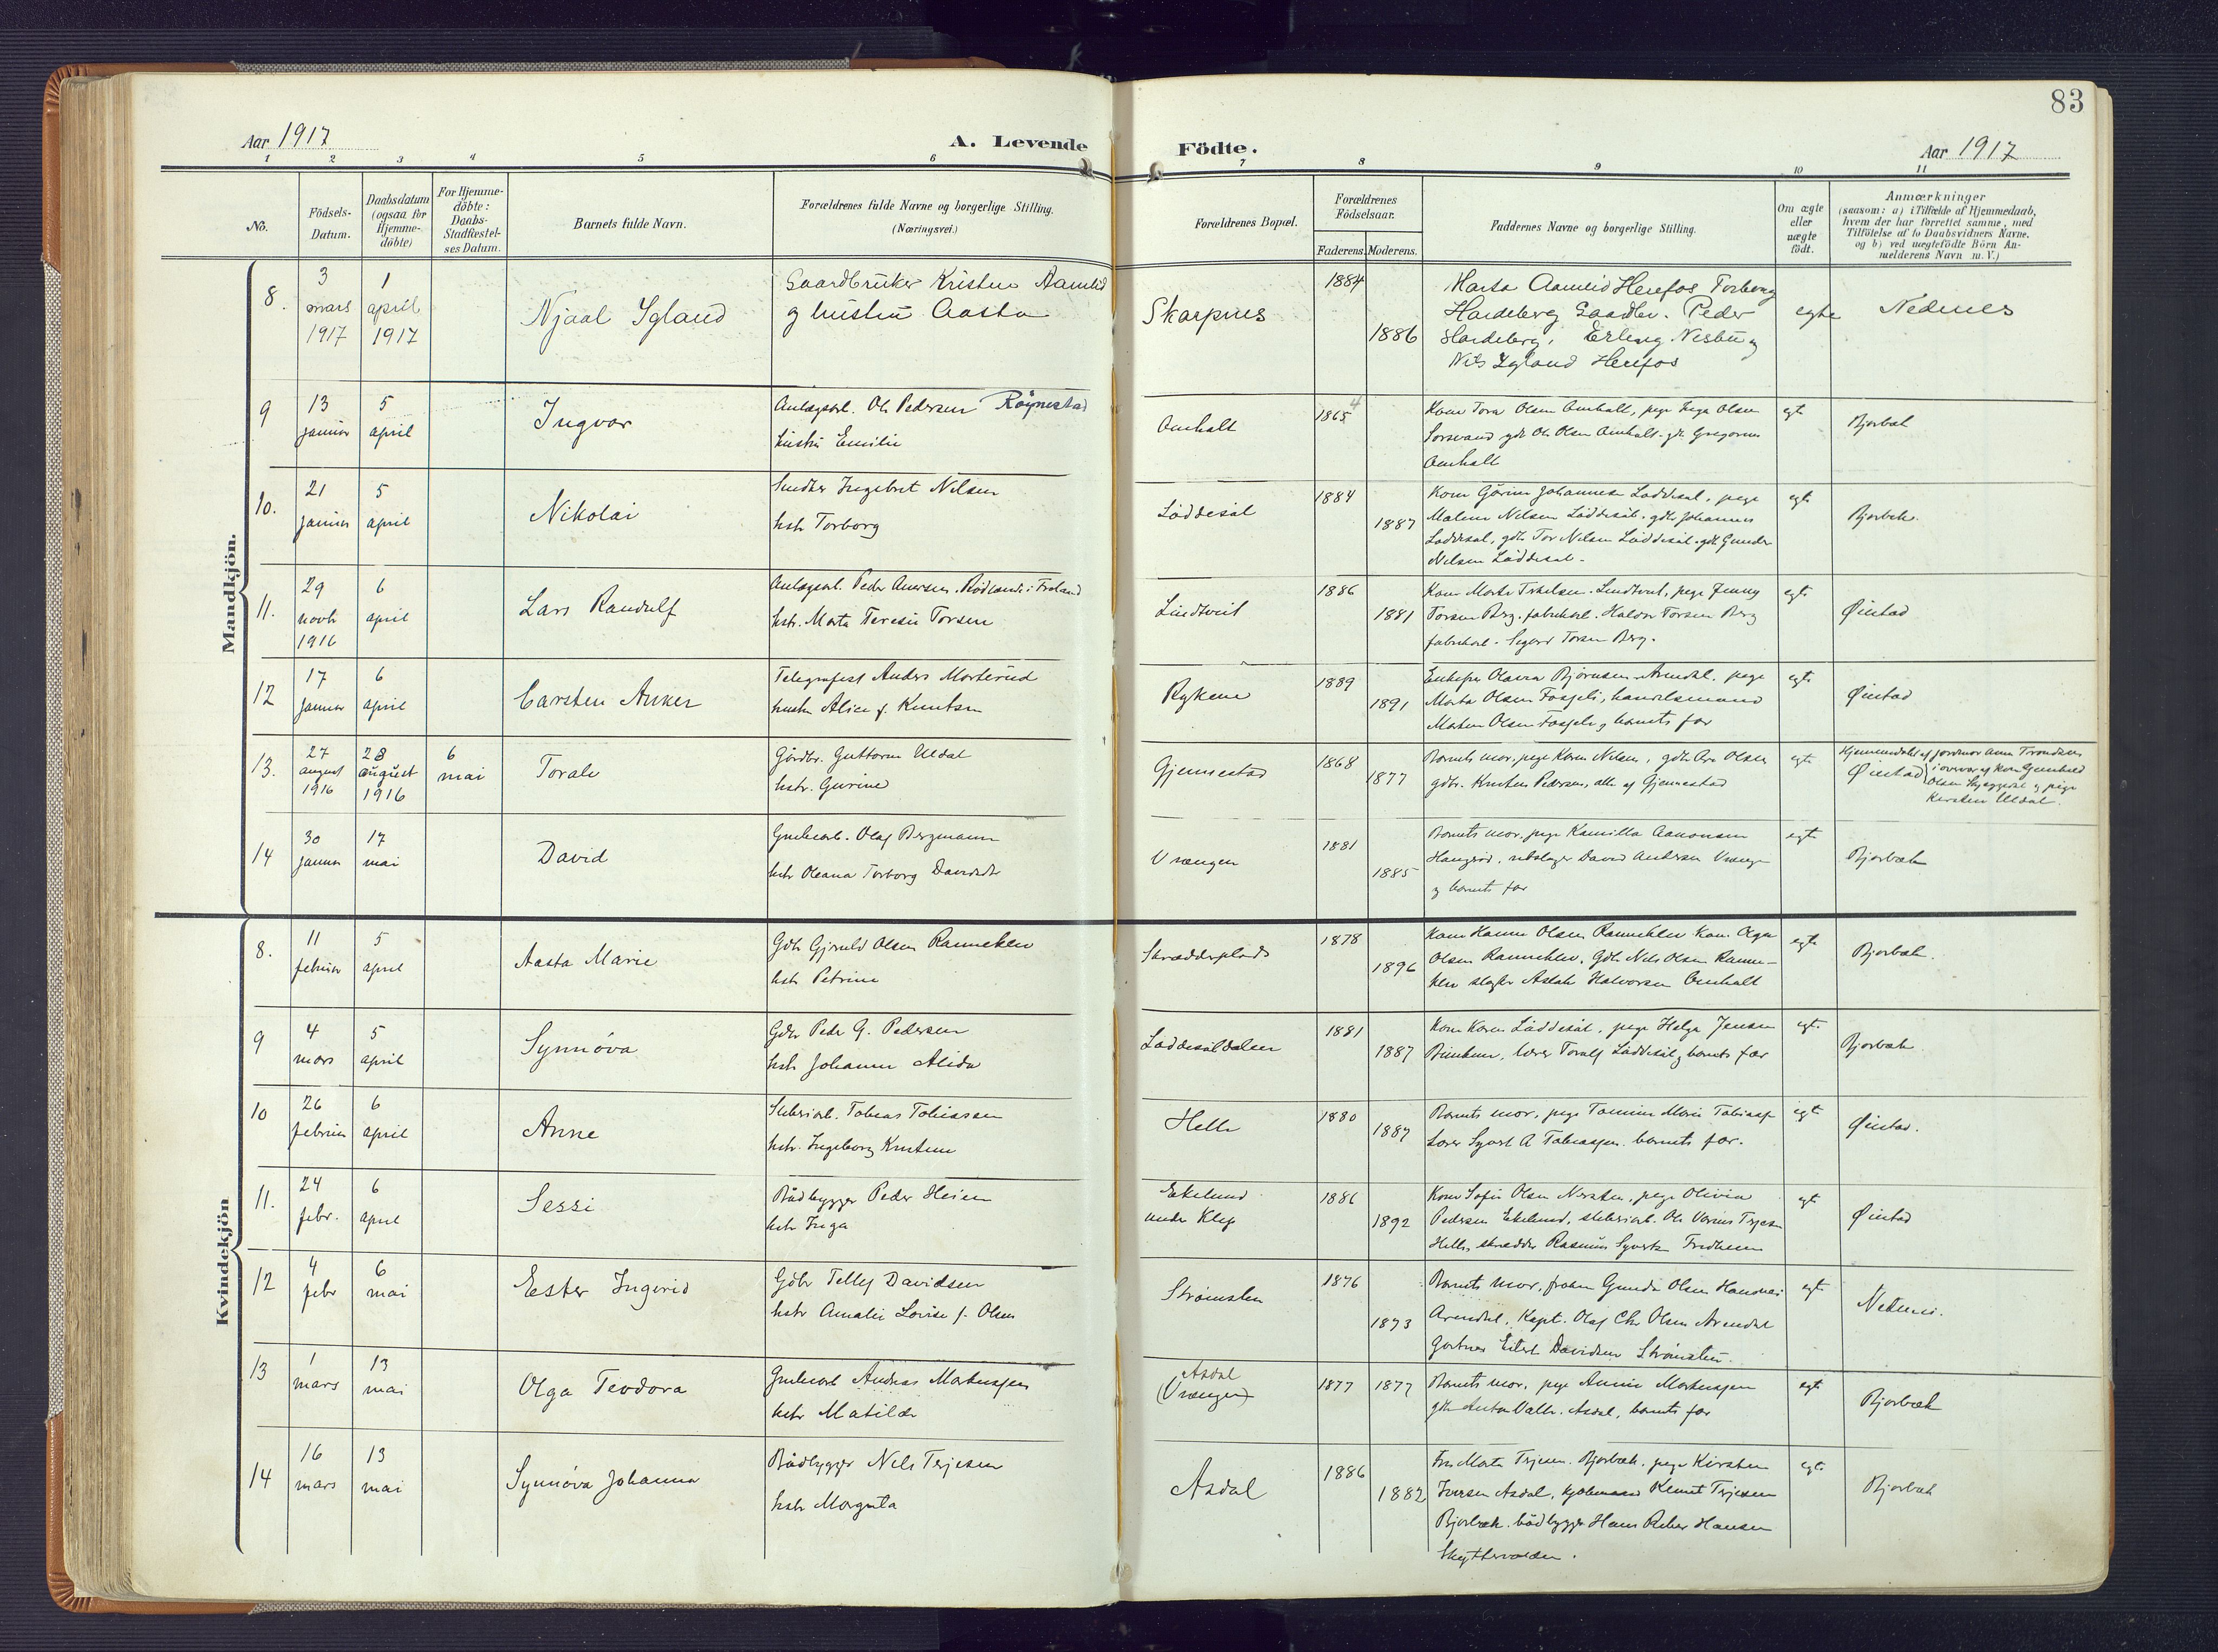 83
Aar 1917
A. Levende
Födte.
Aar 1917
1 2 3 4 5 6 7 8 9 10 11
No.
Födsels-
Datum.
Daabsdatum
(ogsaa for
Hjemme-
döbte)
For Hjemme-
döbte:
Daabs-
Stadfestel-
ses Datum.
Barnets fulde Navn.
Forældrenes fulde Navne og borgerlige Stilling.
(Næringsvei.)
Forældrenes Bopæl.
Forældrenes
Födselsaar.
Faderens. Moderens.
Faddernes Navne og borgerlige Stilling.
Om ægte
eller
uægte
födt.
Anmærkninger
(saasom: a) i Tilfælde af Hjemmedaab,
hvem der har forrettet samme, med
Tilföielse af to Daabsvidners Navne.
og b) ved uægtefödte Börn An-
melderens Navn m. V.)
Mandkjön.
8.
3
mars
1917
1
april
1917
Njaal Igland
Gaardbruker Kristen Aamlid
og hustru Aasta
Skarpnes
1884
1886
Marta Aamlid Herefos Torborg
Hardeberg Gaardbr. Peder
Hardeberg, Erling Nesbu og
Nils Igland Herefos
egte
Nedenes
9
13
januar
5
april
Ingvar
Anlægsarb. Ole Pedersen Röynestad
hustru Emilie
Omholt
1865 4
Kone Tora Olsen Omholt, pige Inga Olsen
gdr. Ole Olsen Omholt. gdr. Gregorius
Omholt
egte
Bjorbæk
10.
21
januar
5
april
Nikolai
Ingebret Nilsen
hstr Torborg
Løddesøl
1884
1887
Kone Gurine Johannesen Løddesøl, pige
Malene Nilsen Løddesøl. gdbr Johannes
Løddesøl, gdbr. Tor Nilsen Løddesøl. gdbr. Gunder
Nilsen Løddesøl.
egte
Bjorbæk.
11.
29
novbr
1916
6
april
Lars Randulf
Anlægsarb. Peder Andersen, i Froland
hstr. Marta Teresie Torsen
Lindtveit
1886
1881
Kone Marte Terkelsen. Lindtveit, pige Jenny
Torsen Berg. fabrikarb. Haldor Torsen Berg
fabrikarb. Sigurd Torsen Berg.
egte
Øiestad
12
17
januar
6
april
Carsten Anker
Telegrafist Anders Morterud
hustru Alice f. Knutsen
Rykene
1889
1891
Enkefru Olava Bjørnsen Arendal. pige
Marta Olsen Fosseli, handelsmand
Morten Olsen Fosseli og barnets far
egte
Øiestad
13.
27
august
1916
28
august
1916
6
mai
Toralv
Gårdbr. Guttorm Uldal
hstr. Gurine
Gjennestad
1868
1877
Barnets mor, pige Karen Nilsen, gdbr. Olsen
gdbr. Kristen Pedersen, alle af Gjennestad
egte
Hjemmedøbt af jordmor Anna Trondsen
Øiestad i overvær af kone Gunhild
Olsen og pige
Kirsten Uldal.
14
30
januar
17
mai
David
Grubearb. Olaf Bergmann
hstr Oleana Torborg Davidsdtr
Vrengen
1881
1885
Barnets mor, pige Kamilla Aanonsen
David Andersen Vrengen
og barnets far
egte
Bjorbæk
Kvindekjön
8.
11
februar
5
april
Aasta Marie
Gdbr Gjeruld Olsen Rannekleiv
hstr Petrine
Skrædderplads
1878
1896
Kone Hanne Olsen Rannekleiv. Kone Olga
Olsen Rannekleiv, Gdbr. Nils Olsen Ranne-
kleiv slagter Aslak Halvorsen Omholt
egte
Bjorbæk.
9
4
mars
5
april
Synnöva
Gdbr Peder G. Pedersen
hstr Johanne Alida
Løddesøldalen
1881
1887
Kone Karen Løddesøl, pige Helga Jensen
lærer Toralf Løddesøl og barnets far
egte.
Bjorbæk
10
26
februar
6
april
Anne
Sliberiarb. Tobias Tobiassen
hstr. Ingeborg Kristine
Helle
1880
1887
Barnets mor, pige Tomine Marie Tobiassen
Lærer Syvert A Tobiassen. barnets far.
egte
Øiestad.
11.
24
febr.
6
april
Sessi
Bådbygger Peder Heien
hstr Inga
Ekelund
under Klep
1886
1892
Kone Sofie Olsen Nersten, pige Olivia
Pedersen Ekelund, sliberiarb. Ole Terjesen
Helle, skrædder Rasmus Syvertsen Fredheim
egte
Øiestad
12
4
febr
6
mai
Ester Ingerid
Gdbr Tellef Davidsen
hstr Amalie Lovise f. Olsen
Strømsten
1876
1873
Barnets mor, frøken Gunda Olsen
Arendal, Kapt. Olaf Chr Olsen Arendal
Gartner Eilert Davidsen Strømsten.
egte
Nedenes.
13
1
mars
13
mai
Olga Teodora
Grubearb Andreas Markussen
hstr Matilde
Asdal
(Vrengen)
1877
1877
Barnets mor, pige Annie Markussen
gdbr Anton Valle. Asdal, barnets far
egte
Bjorbæk
14
16
mars
13
mai
Synnöva Johanna
Bådbygger Nils Terjesen
hstr Margreta
Asdal
1886
1882
Fru Marta Terjesen. Bjorbæk. pige Kirsten
Iversen Asdal, kjøbmand Kennet Terjesen
Bjorbæk. bådbygger Hans Reber Hansen
egte
Bjorbæk